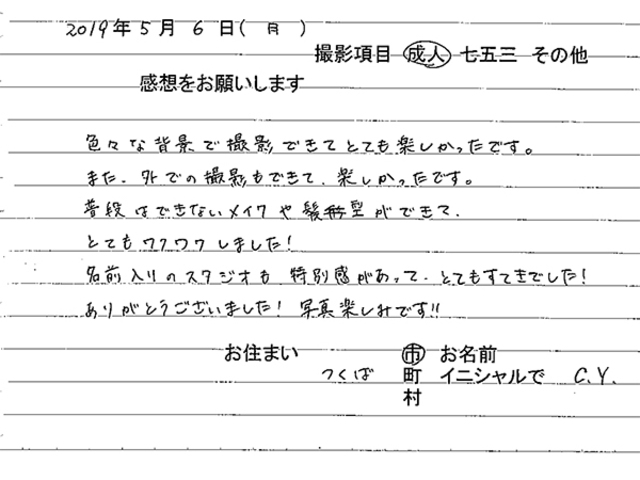 2019年5月6日(月)
撮影項目 成人 七五三 その他
感想をお願いします
色々な背景で撮影できてとても楽しかったです。
また、外での撮影もできて、楽しかったです。
普段はできないメイクや髪型ができて、
とてもワクワクしました!
名前入りのスタジオも、特別感があって、とてもすてきでした!
ありがとうございました! 写真楽しみです!!
お住まい 市 お名前
つくば 町 イニシャルで C.Y.
村